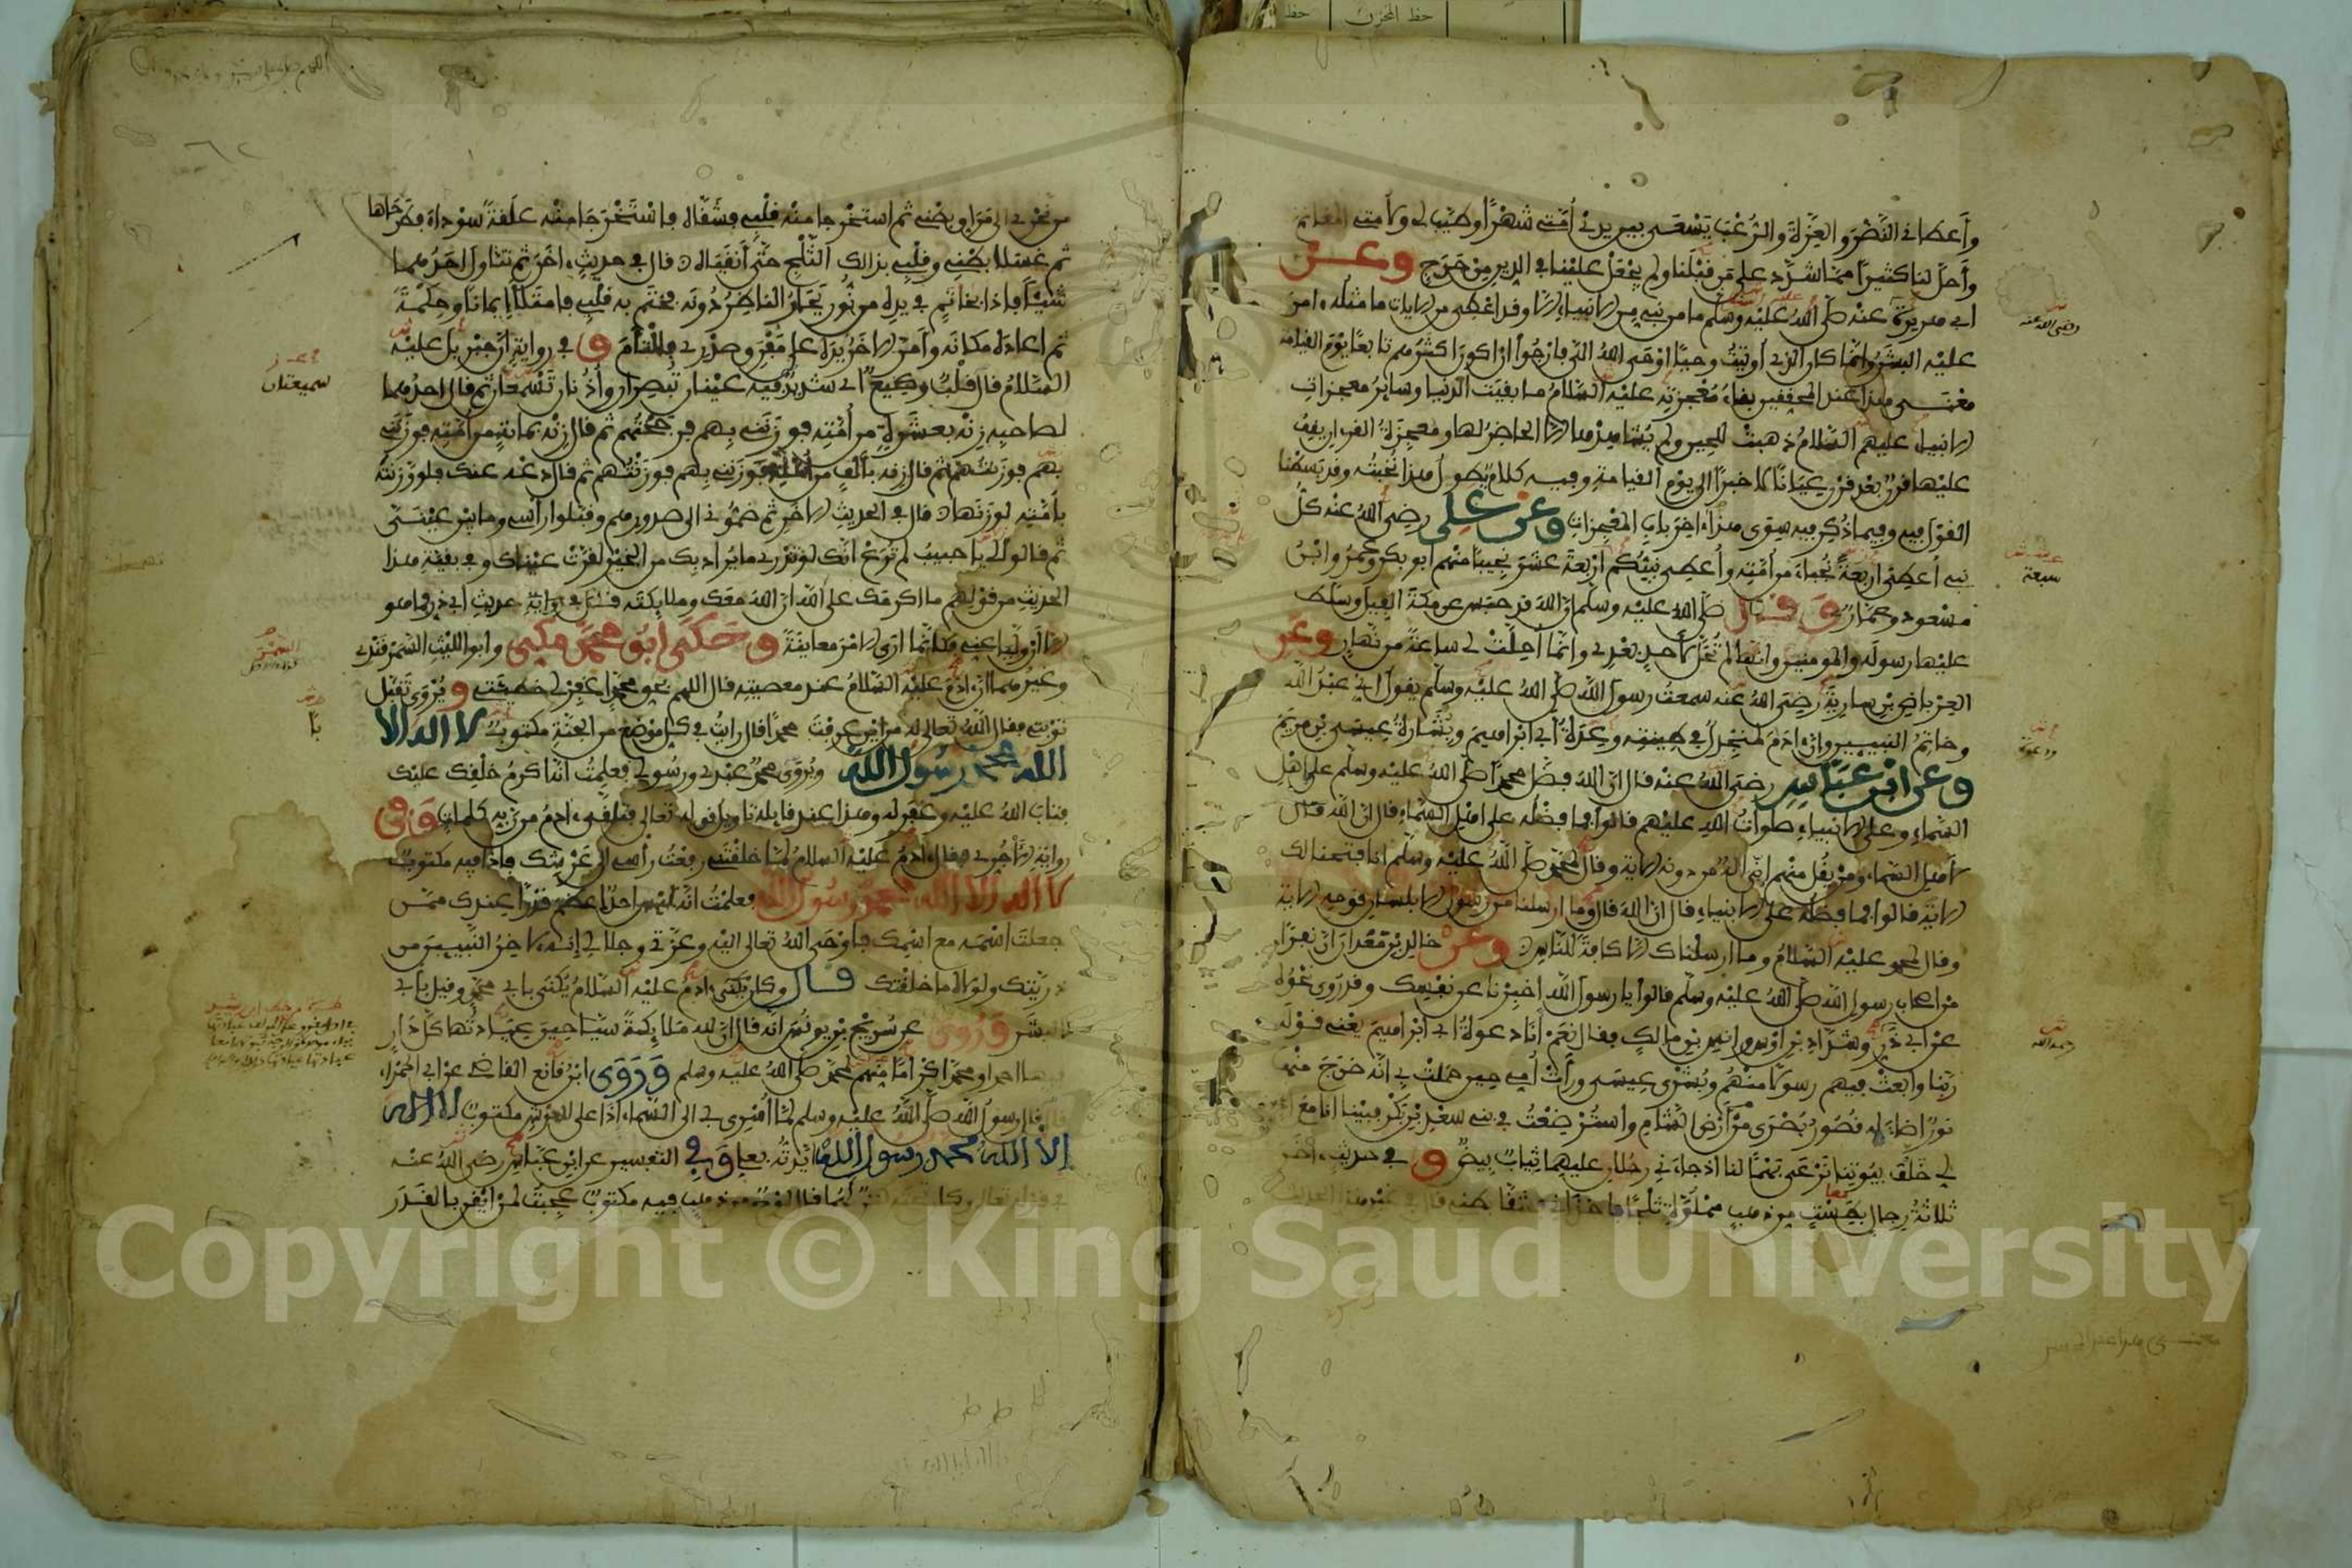 وأعطاني النصر والعزة والرعب يسعى بين يدي أمتي شهرا وطيب لي ولأمتي المغانم
وأحل لنا كثيرا مما شدد على من قبلنا ولم يجعل علينا في الدين من حرج وعن
أبي هريرة عنه صلى الله عليه وسلم ما من نبي من الأنبياء إلا وقد أعطي من الآيات ما مثله ءامن
عليه البشر وإنما كان الذي أوتيت وحيا أوحى الله إلي فأرجوا أن أكون أكثرهم تابعا يوم القيامة
معنى هذا عند المحققين بقاء معجزته عليه السلام ما بقيت الدنيا وساير معجزات
الأنبياء عليهم السلام ذهبت للحين ولم يشاهدها إلا الحاضر لها ومعجزة القرآن يقف
عليها قرن بعد قرن عيانا لا خبرا إلى يوم القيامة وفيه كلام يطول هذا نخبته وقد بسطنا
القول فيه وفيما ذكر فيه سوى هذا ءاخر باب المعجزات وعن علي رضي الله عنه كل
نبي أعطي أربعة نجباء من أمته وأعطي نبيكم أربعة عشر نجيبا منهم أبو بكر وعمر وابن
مسعود وعمار وقال صلى الله عليه وسلم إن الله قد حبس عن مكة الفيل وسلط
عليها رسوله والمومنين وإنها لم تحل لأحد بعدي وإنما أحلت لي ساعة من نهار وعن
العرباض بن سارية رضي الله عنه سمعت رسول الله صلى الله عليه وسلم يقول إني عبد الله
وخاتم النبيين وإن ءادم لمنجدل في طينته وعدة أبي إبراهيم وبشارة عيسى بن مريم
وعن ابن عباس رضي الله عنه قال إن الله فضل محمدا صلى الله عليه وسلم على أهل
السماء وعلى الأنبياء صلوات الله عليهم قالوا فما فضله على أهل السماء قال إن الله قال
لأهل السماء ومن يقل منهم إني إله من دونه الآية وقال لمحمد صلى الله عليه وسلم إنا فتحنا لك
الآية قالوا فما فضله على الأنبياء قال إن الله قال وما أرسلنا من رسول إلا بلسان قومه الآية
وقال لمحمد عليه السلام وما أرسلناك إلا كافة للناس وعن خالد بن معدان أن نفرا
من أصحاب رسول الله صلى الله عليه وسلم قالوا يا رسول الله أخبرنا عن نفسك وقد روي نحوه
عن أبي ذر وشداد بن أوس وأنس بن مالك فقال نعم أنا دعوة أبي إبراهيم يعني قوله
ربنا وابعث فيهم رسولا منهم وبشرى عيسى ورأت أمي حين حملت بي أنه خرج منها
نور أضاء له قصور بصرى من أرض الشام واسترضعت في بني سعد بن بكر فبينا أنا مع أخ
لي خلف بيوتنا نرعى بهما لنا إذ جاءني رجلان عليهما ثياب بيض و في حديث ءاخر
ثلاثة رجال بطست من ذهب مملوءة ثلجا فأخذاني فشقا بطني قال في غير هذا الحديث
رضي الله عنه
سبعة
ودعوة
رحمه الله
من نحري إلى مراق بطني ثم استخرجا منه قلبي فشقاه فاستخرجا منه علقة سوداء فطرحاها
ثم غسلا بطني وقلبي بذلك الثلج حتى أنقياه قال في حديث ءاخر ثم تناول أحدهما
شيئا فإذا بخاتم في يده من نور يحار الناظر دونه فختم به قلبي فامتلأ إيمانا وحكمة
ثم أعاده مكانه وأمر الآخر يده على مفرق صدري فالتأم و في رواية أن جبريل عليه
السلام قال قلب وكيع أي شديد فيه عينان تبصران وأذنان تسمعان ثم قال أحدهما
لصاحبه زنه بعشرة من أمته فوزنني بهم فرجحتهم ثم قال زنه بمائة من أمته فوزنني
بهم فوزنتهم ثم قال زنه بألف من أمته فوزنني بهم فوزنتهم ثم قال دعه عنك فلو وزنته
بأمته لوزنها قال في الحديث الآخر ثم ضموني إلى صدورهم وقبلوا رأسي وما بين عيني
ثم قالوا لي يا حبيب لم ترع إنك لو تدري ما يراد بك من الخير لقرت عيناك و في بقية هذا
الحديث من قولهم ما أكرمك على الله إن الله معك وملايكته قال في رواية حديث أبي ذر فما هو
إلا أن وليا عني فكأنما أرى الأمر معاينة وحكى أبو محمد مكي وأبو الليث السمرقندي
وغيرهما أن ءادم عليه السلام عند معصيته قال اللهم بحق محمد اغفر لي خطيئتي و يروى تقبل
توبتي فقال الله تعالى له من أين عرفت محمدا قال رأيت في كل موضع من الجنة مكتوب لا إله إلا
الله محمد رسول الله ويروى محمد عبدي ورسولي فعلمت أنه أكرم خلقك عليك
فتاب الله عليه وغفر له وهذا عند قايله تاويل قوله تعالى فتلقى ءادم من ربه كلمات وفي
رواية الآجري فقال ءادم عليه السلام لما خلقتني رفعت رأسي إلى عرشك فإذا فيه مكتوب
لا إله إلا الله محمد رسول الله فعلمت أنه ليس أحد أعظم قدرا عندك ممن
جعلت اسمه مع اسمك فأوحى الله تعالى إليه وعزتي وجلالي إنه لآخر النبيين من
ذريتك ولولاه ما خلقتك قال وكان يكنى ءادم عليه السلام يكنى بأبي محمد وقيل بأبي
البشر وروي عن سريج بن يونس أنه قال إن لله ملايكة سياحين عيادتها كل دار
فيها أحمد أو محمد إكراما منهم لمحمد صلى الله عليه وسلم وروى ابن قانع القاضي عن أبي الحمراء
قال قال رسول الله صلى الله عليه وسلم لما أسري بي إلى السماء إذا على العرش مكتوب لا إله
إلا الله محمد رسول الله أيدته بعلي وفي التفسير عن ابن عباس رضي الله عنه
في قوله تعالى وكان تحته كنز لهما قال لوح من ذهب فيه مكتوب عجبت لمن أيقن بالقدر
سميعتان